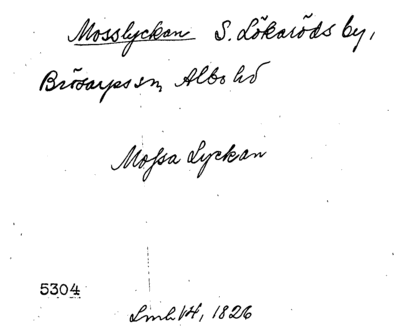 Mosslyckan S. Lökaröds by,
Brösarps sn, Albo hd
Mossa Lyckan
5304
Lmh V4, 1826